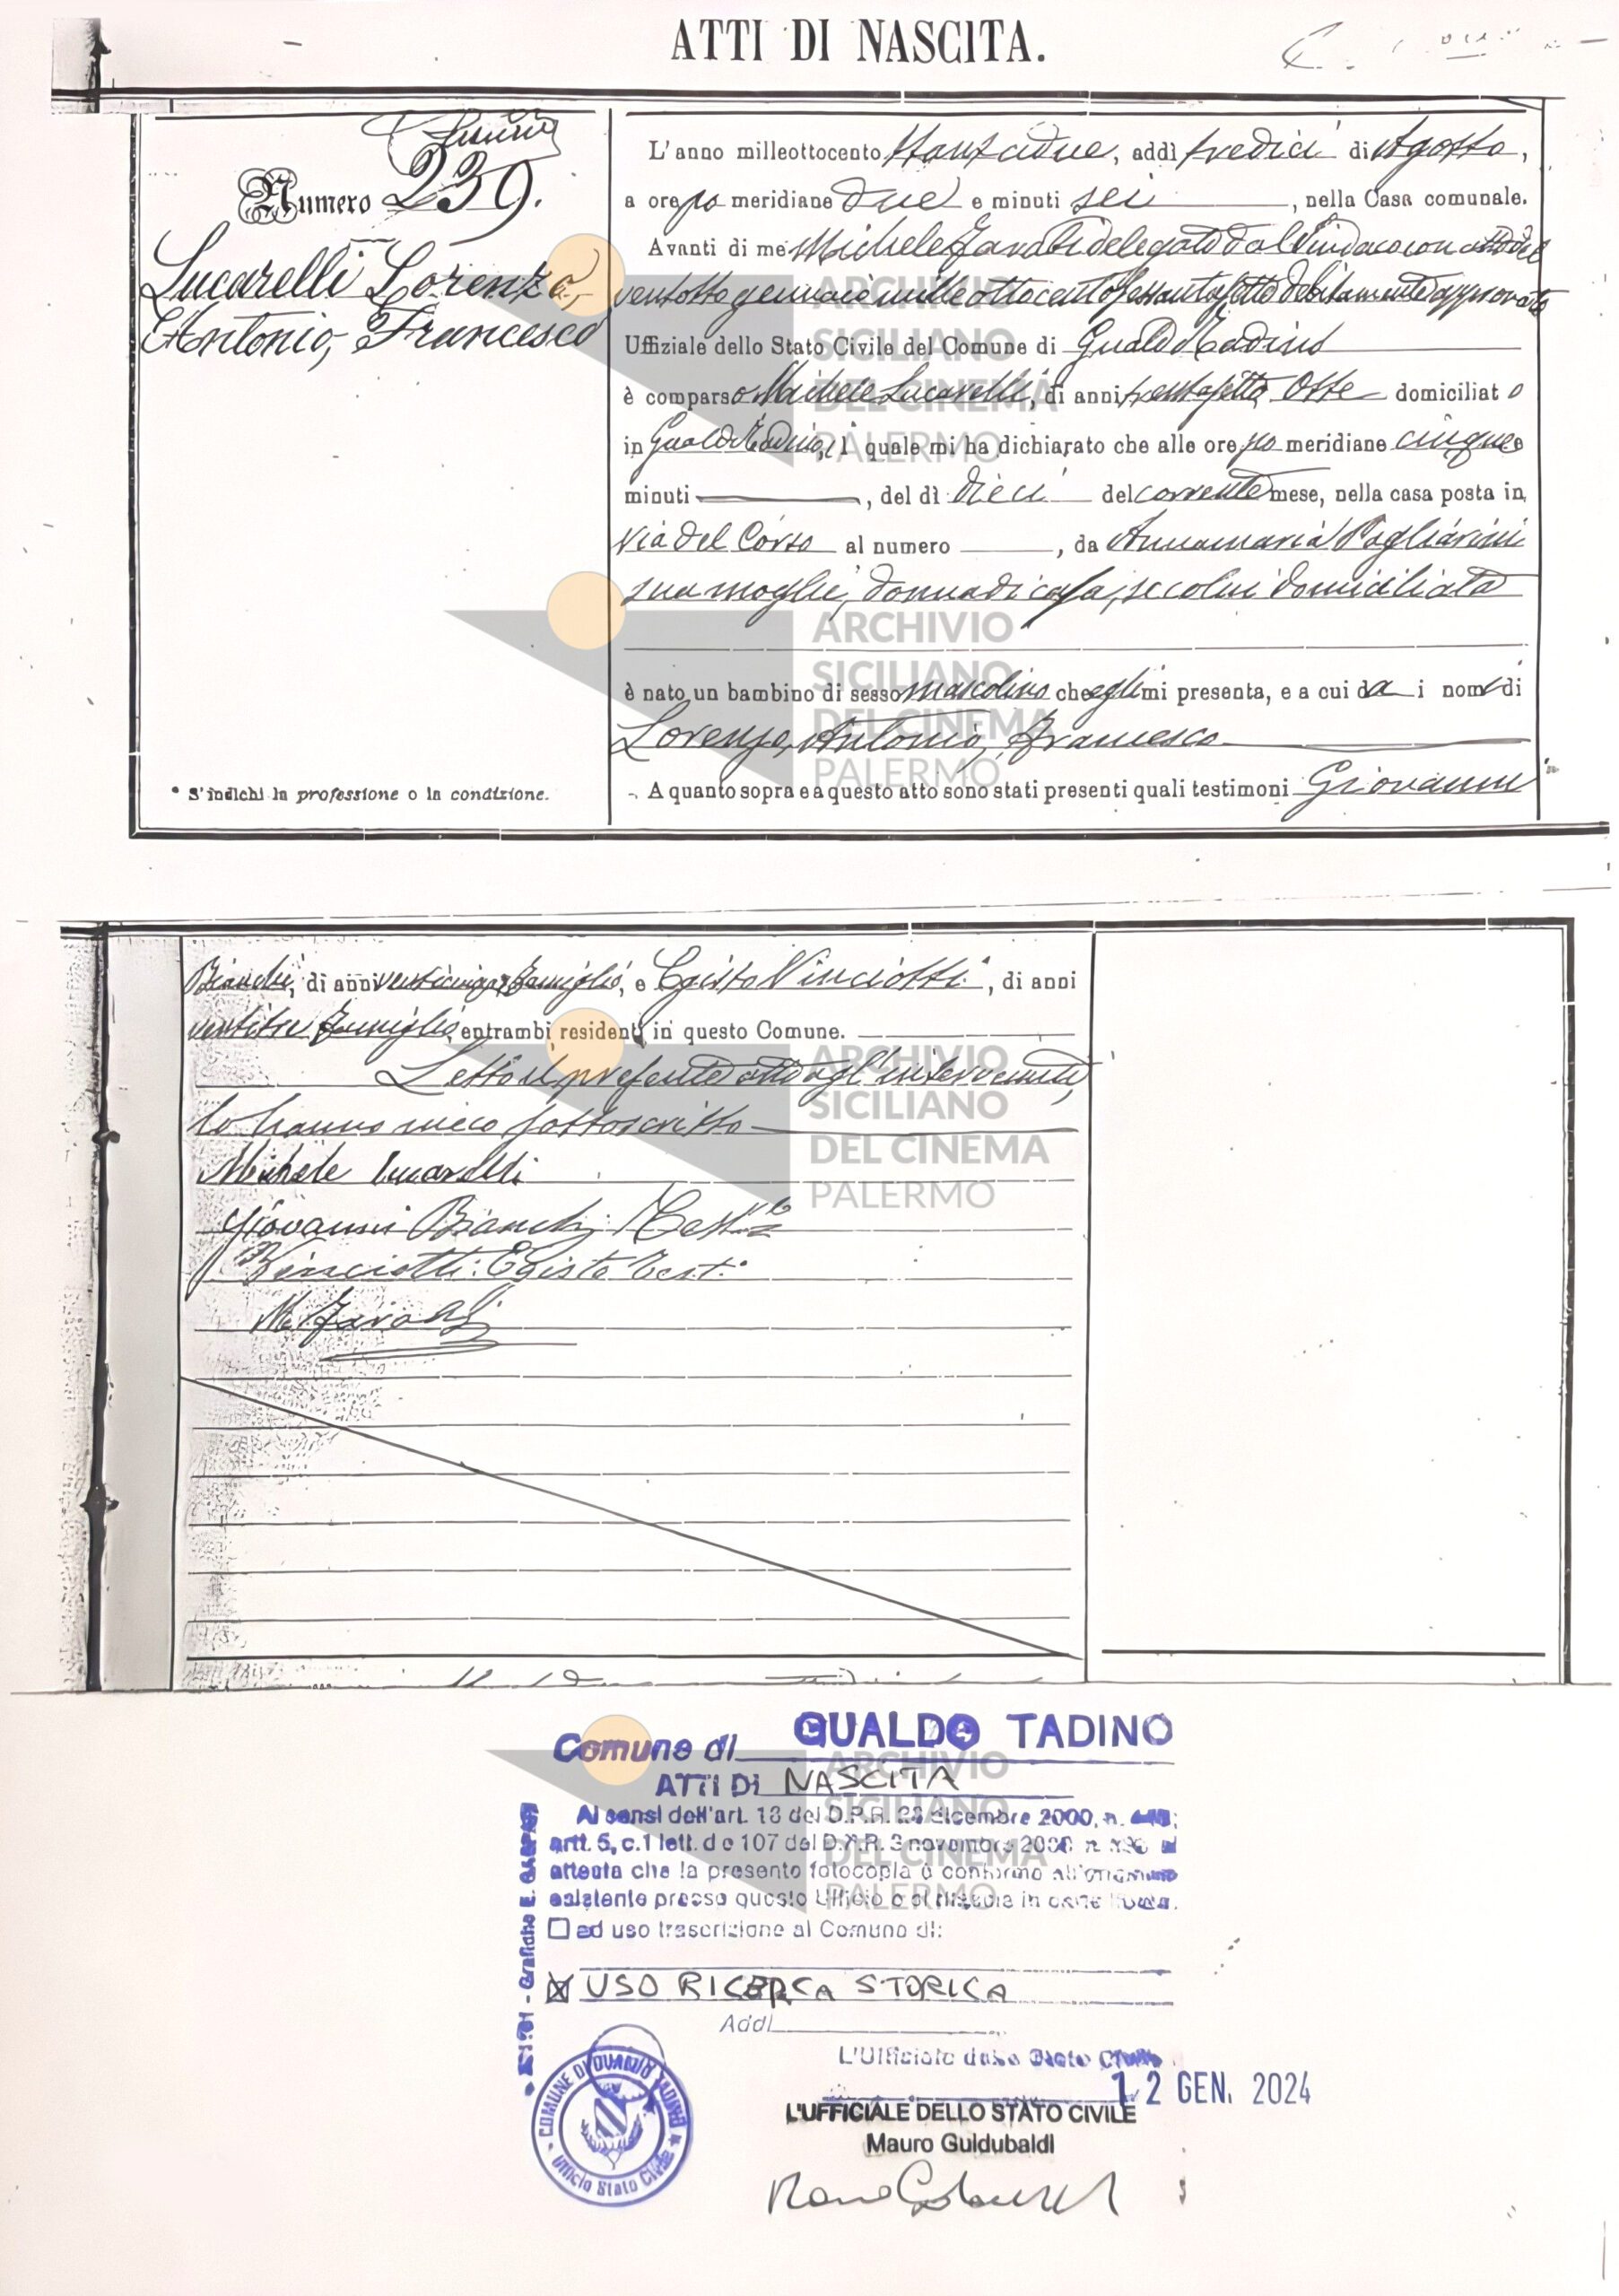 ATTI DI NASCITA.
Numero 239.
Lucarelli Lorenzo,
Antonio, Francesco
* S'indichi la professione o la condizione.
L'anno milleottocento ottantadue, addì tredici di Agosto,
a ore po meridiane due e minuti sei, nella Casa comunale.
Avanti di me Michele delegato dal Sindaco con atto del
ventotto gennaio mille ottocentosessantasette debitamente approvato
Uffiziale dello Stato Civile del Comune di Gualdo Tadino
è comparso Michele Lucarelli, di anni trentasette, Oste domiciliato
in Gualdo Tadino, il quale mi ha dichiarato che alle ore po meridiane cinque e
minuti, del dì dieci del corrente mese, nella casa posta in
Via del Corso al numero, da Annamaria Pagliarini
sua moglie, donna di casa, seco lui domiciliata
è nato un bambino di sesso mascolino che egli mi presenta, e a cui da i nomi di
Lorenzo, Antonio, Francesco
A quanto sopra e a questo atto sono stati presenti quali testimoni Giovanni
Bianchi, di anni venticinque, Famiglio, e Egisto Vinciotti, di anni
ventitre Famiglio, entrambi residenti in questo Comune.
Letto il presente atto agl'intervenuti,
lo hanno meco sottoscritto
Michele Lucarelli
Giovanni Bianchi Test.
Vinciotti Egisto Test.
ARCHIVIO
SICILIANO
DEL CINEMA
PALERMO
ARCHIVIO
SICILIANO
DEL CINEMA
PALERMO
ARCHIVIO
SICILIANO
DEL CINEMA
PALERMO
Comune di GUALDO TADINO
ATTI DI NASCITA
Ai sensi dell'art. 18 del D.P.R. 28 dicembre 2000, n.
artt. 5, c.1 lett. d e 107 del D.P.R. 3 novembre 2000 n.
attesta che la presente fotocopia è conforme all'originale
esistente presso questo Ufficio e si rilascia in carta libera.
ad uso trascrizione al Comune di:
USO RICERCA STORICA
Addì
L'Ufficiale dello Stato Civile
12 GEN. 2024
L'UFFICIALE DELLO STATO CIVILE
Mauro Guidubaldi
COMUNE DI GUALDO TADINO
Ufficio Stato Civile
ARCHIVIO
SICILIANO
DEL CINEMA
PALERMO